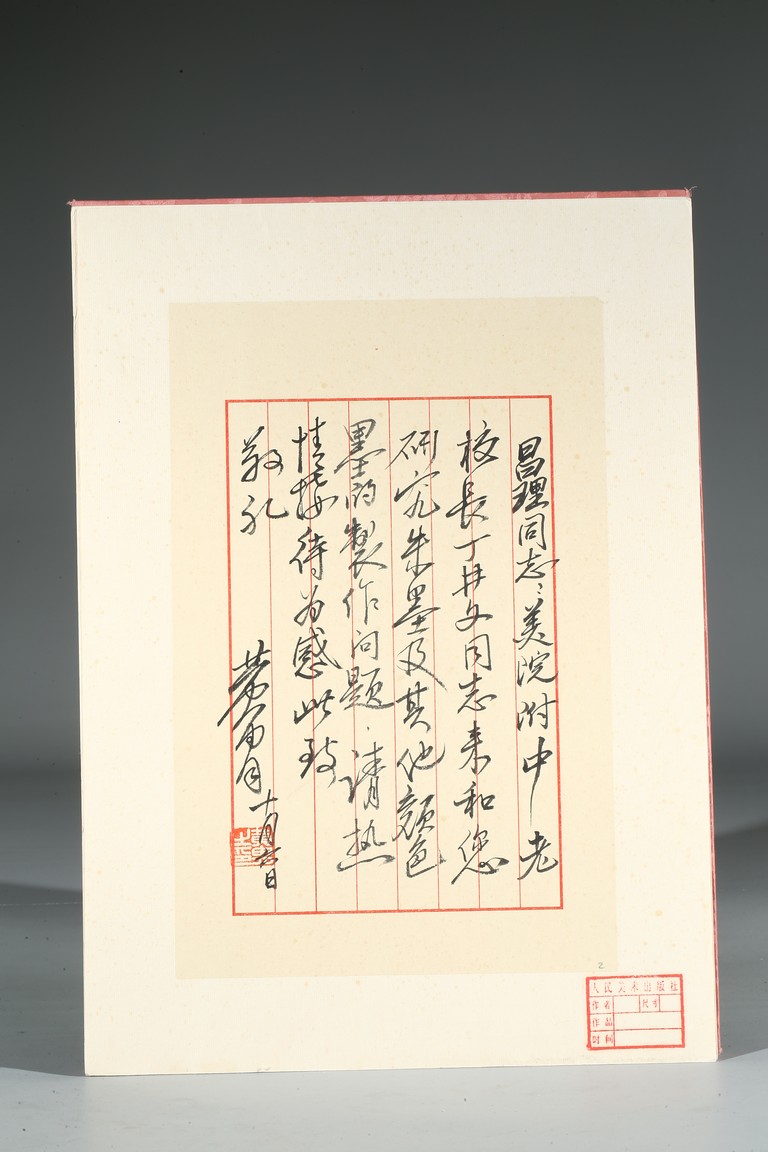 昌理同志:美院附中老
校長丁井文同志来和您
研究朱墨及其他顔色
墨的製作问题.请热
情接待为感此致
敬礼
黄胄 十月六日
2
人民美术出版社
作者 尺寸
作品
时间